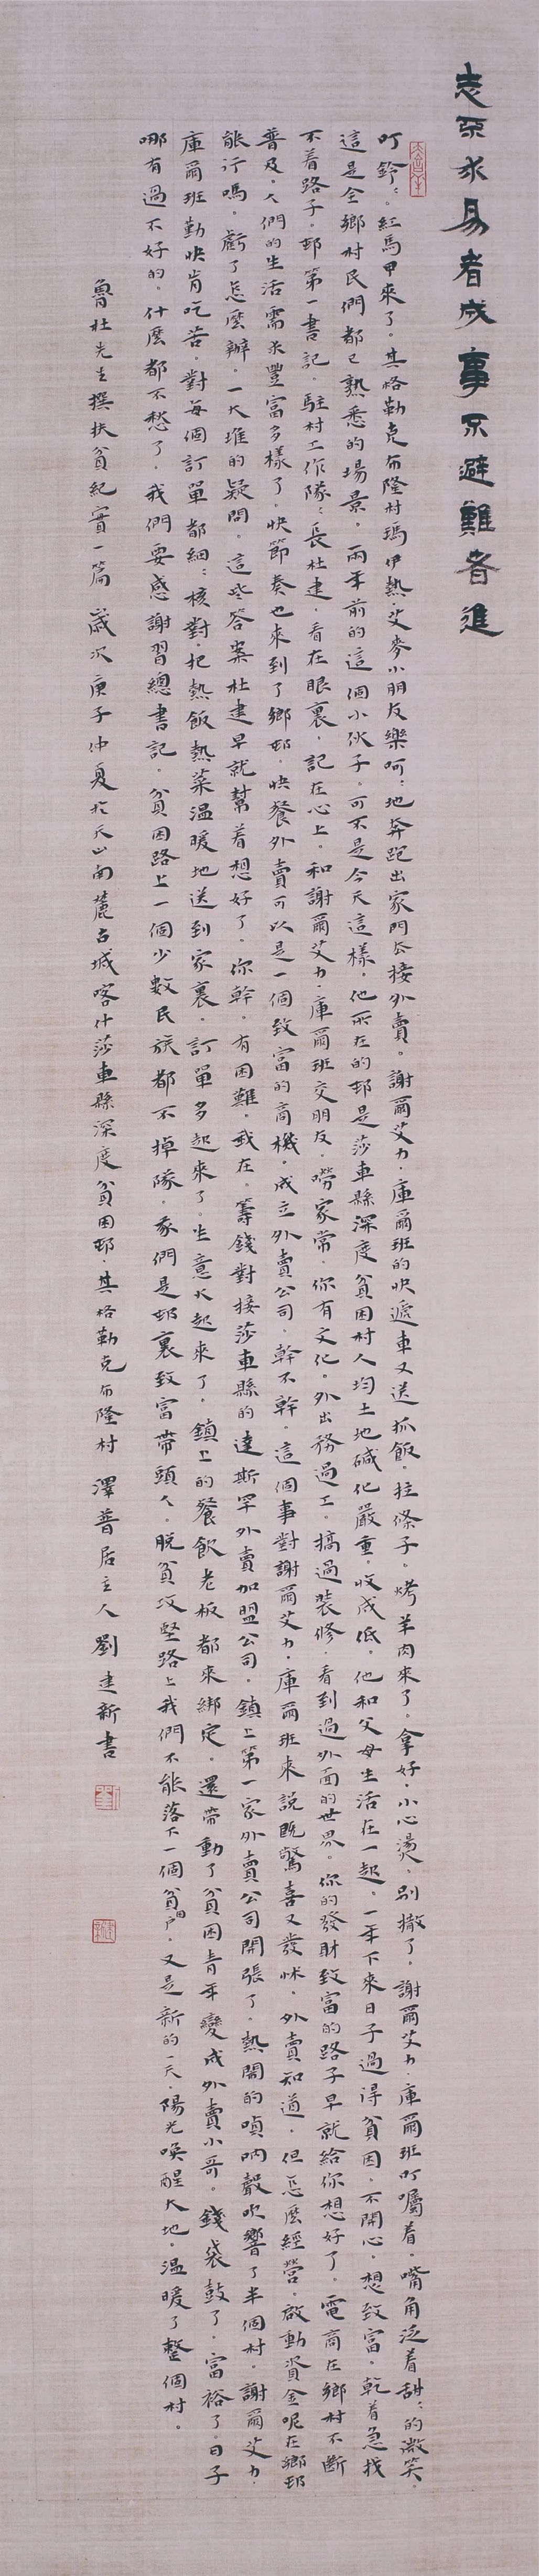 志不求易者成事不避難者進
叮鈴：。紅馬甲來了。其格勒克布隆村瑪伊熱·艾麥小朋友樂呵：地奔跑出家門去接外賣。謝爾艾力·庫爾班的快遞車又送抓飯。拉條子。烤羊肉來了。拿好。小心燙。別撒了。謝爾艾力·庫爾班叮囑着。嘴角泛着甜：的微笑。
這是全鄉村民們都已熟悉的場景。兩年前的這個小伙子。可不是今天這樣。他所在的邨是莎車縣深度貧困村人均土地碱化嚴重。收成低。他和父母生活在一起。一年下來日子過得貧困。不開心。想致富。乾着急找
不着路子。邨第一書記。駐村工作隊：長杜建。看在眼裏。記在心上。和謝爾艾力·庫爾班交朋友。嘮家常。你有文化。外出務過工。搞過裝修。看到過外面的世界。你的發財致富的路子早就給你想好了。電商在鄉村不斷
普及。人們的生活需求豐富多樣了。快節奏也來到了鄉邨。快餐外賣可以是一個致富的商機。成立外賣公司。幹不幹。這個事對謝爾艾力·庫爾班來說既驚喜又發怵。外賣知道。但怎麼經營。啟動資金呢在鄉邨
能行嗎。虧了怎麼辦。一大堆的疑問。這些答案杜建早就幫着想好了。你幹。有困難。我在。籌錢對接莎車縣的達斯罕外賣加盟公司。鎮上第一家外賣公司開張了。熱鬧的嗩吶聲吹響了半個村。謝爾艾力·
庫爾班勤快肯吃苦。對每個訂單都細：核對。把熱飯熱菜温暖地送到家裏。訂單多起來了。生意火起來了。鎮上的餐飲老板都來綁定。還帶動了貧困青年變成外賣小哥。錢袋鼓了。富裕了。日子
哪有過不好的。什麼都不愁了。我們要感謝習總書記。貧困路上一個少數民族都不掉隊。我們是邨裏致富帶頭人。脫貧攻堅路上我們不能落下一個貧困户。又是新的一天。陽光喚醒大地。温暖了整個村。
魯杜先生撰扶貧紀實一篇 歲次庚子仲夏於天山南麓古城喀什莎車縣深度貧困邨·其格勒克布隆村 澤普居主人劉建新書